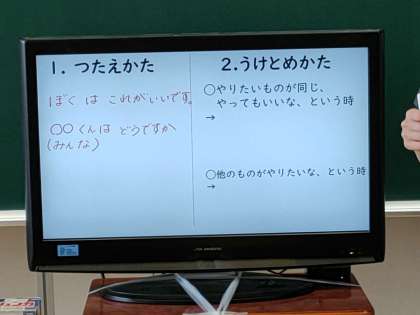 1. つたえかた
ぼく は これがいいです。
○○くんは どうですか
(みんな)
2.うけとめかた
○やりたいものが同じ、
やってもいいな、という時
→
○他のものがやりたいな、という時
→